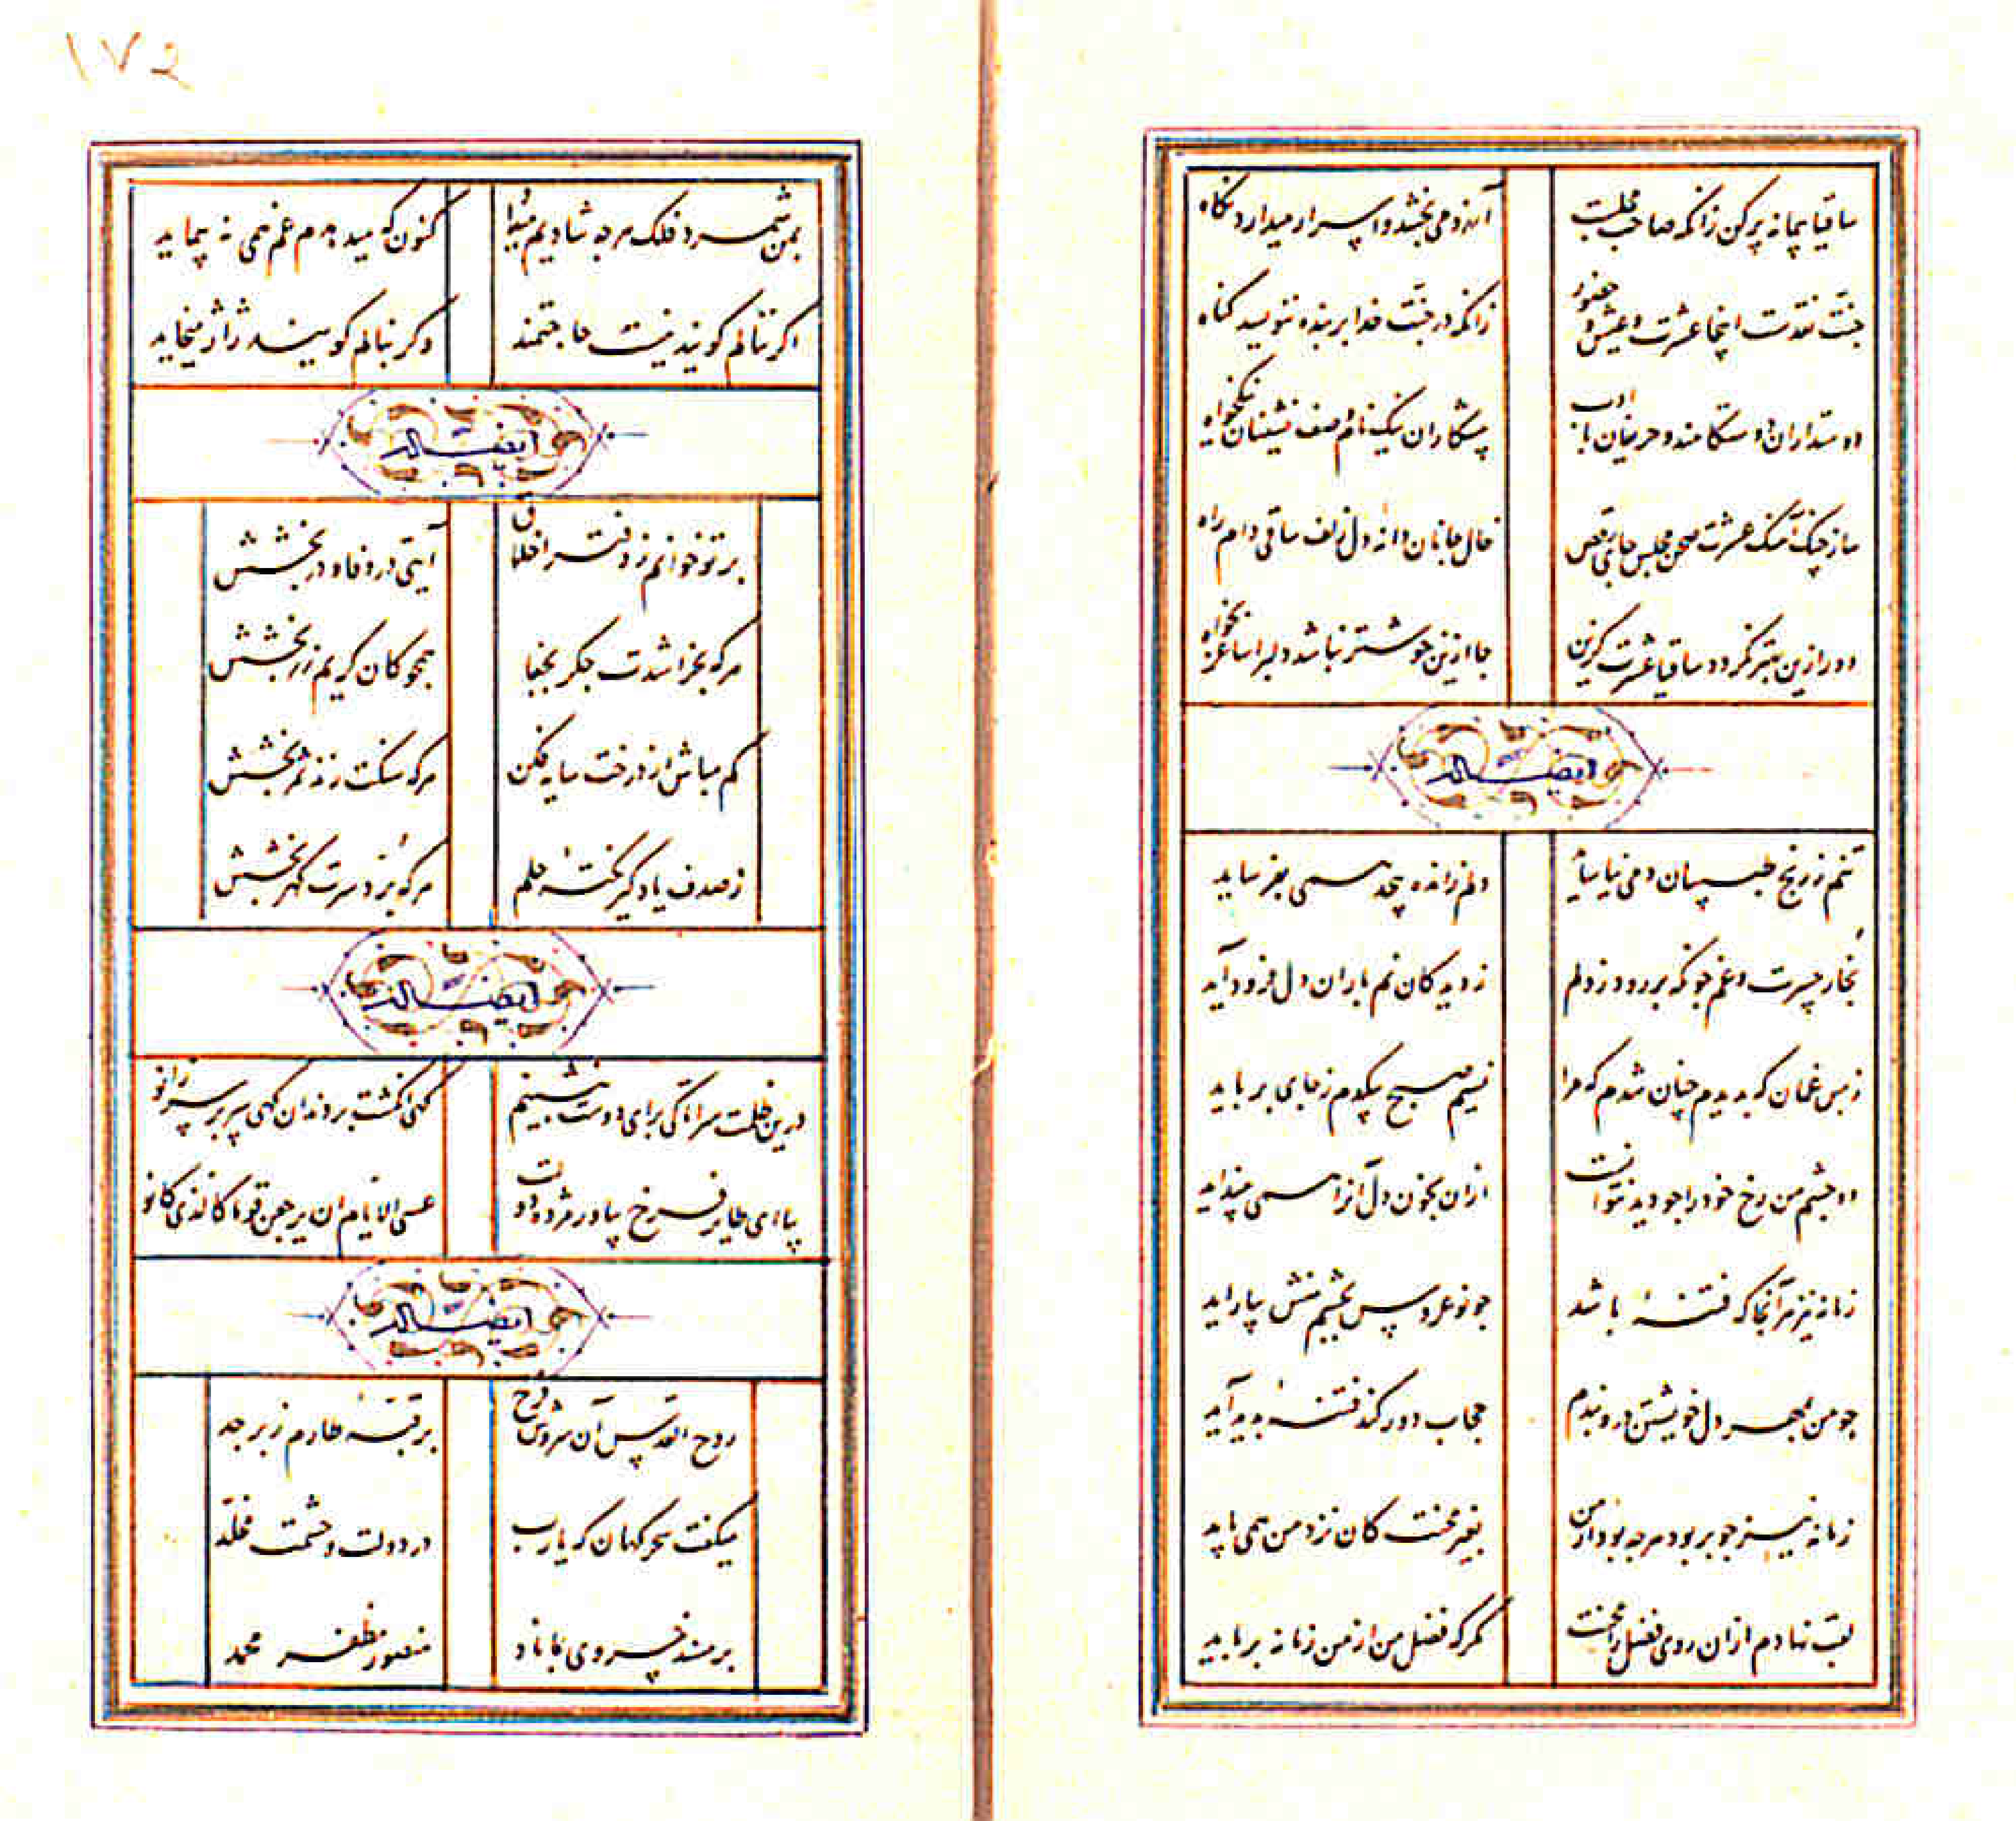 ساقیا پیمانه پر کن زانکه صاحب مجلست
آرزو می بخشد و اسرار میدارد نگاه
جنت نقدست اینجا عشرت و عیش و حضور
زانکه در جنت خدا بر بنده ننویسد گناه
دوستداران دوستکامند و حریفان با ادب
پیشکاران نیک نام و صف نشینان نیکخواه
ساز چنگ آهنگ عشرت صحن مجلس جای رقص
خال جانان دانه دل زلف ساقی دام راه
دور ازین بهتر نگردد ساقیا عشرت گزین
جا ازین خوشتر نباشد دلبرا ساغر بخواه
ایضا له
تنم ز رنج طبیبان دمی نیاساید
دلم ز انده بیحد همی نفرساید
بخار حسرت و غم جو که بررود ز دلم
ز دیدگان نم باران دل فرود آید
ز بس غمان که بدیدم چنان شدم که مرا
نسیم صبح بیکدم ز جای برباید
دو چشم من رخ خود را جو دید نتوانست
ازان بخون دل آنرا همی پنداید
زمانه نیز هر آنجا که فتنهٔ باشد
جو نوعروس بچشم منش بیاراید
جو من بمهر دل خویشتن درو بندم
حجاب دور کند فتنهٔ پدید آید
زمانه نیز جو بربود هرجه بود از من
بغیر محنت کان نزد من همی پاید
لقب نهادم ازان روی فضل را محنت
مگر که فضل من از من زمانه برباید
۱۷۲
بمن شمرد فلک هرجه شادیم میداد
کنون که میدهدم غم همی نه پیماید
اگر ننالم گویند نیست حاجتمند
وگر بنالم گویند ژاژ میخاید
ایضا له
بر تو خوانم ز دفتر اخلاق
آیتی در وفا و در بخشش
هرکه بخراشدت جگر بجفا
همجو کان کریم زر بخشش
کم مباش از درخت سایه فکن
هرکه سنگت زند ثمر بخشش
ز صدف یاد گیر نکتهٔ حلم
هرکه برد سرت گهر بخشش
ایضا له
درین ظلمت سرا تا کی برای دوست بنشینم
گهی انگشت بر دندان گهی سر بر سر زانو
بیا ای طایر فرخ بیاور مژده دولت
عسی الایام ان یرجعن قوما کالذی کانو
ایضا له
روح القدس آن سروش فرخ
بر قبهٔ طارم زبرجد
میگفت سحرگهان که یارب
در دولت و حشمت مخلد
بر مسند خسروی بماناد
منصور مظفر محمد